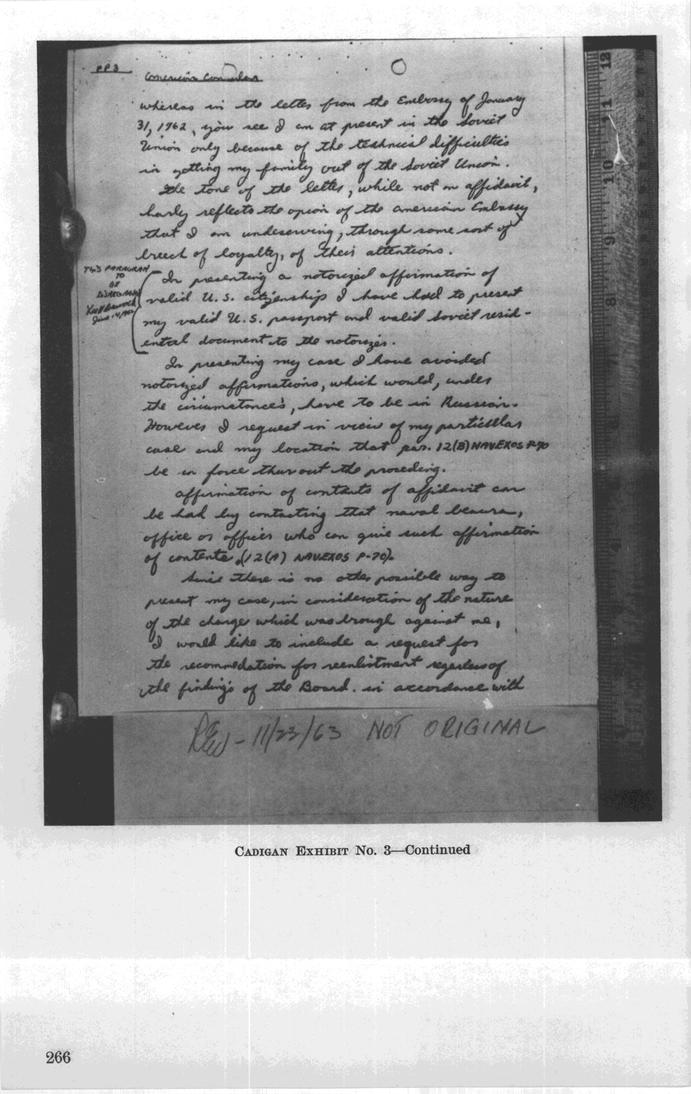 PP3
American Consular
whereas in the letter from the Embassy of January
31, 1962, you see I am at present in the Soviet
Union only because of the technical difficulties
in getting my family out of the Soviet Union.
The tone of the letter, while not an affidavit,
harly reflects the opion of the American Embassy
that I am undeserving, through some sort of
breech of loyalty, of their attentions.
THIS PARAGRAPH
TO
BE
In presenting a notorized affirmation of
valid U.S. citizenship I have had to present
my valid U.S. passport and valid Soviet resid-
ential document to the notorizer.
In presenting my case I have avoided
notorized affirmations, which would, under
the cirumstances, have to be in Russian.
However I request in view of my particular
case and my location that par. 12(B) NAVEXOS P-70
be in force thur out the proceding.
Affirmation of contents of affidavit can
be had by contacting that naval beaura,
office or officer who can give such affirmation
of contents, (12(A) NAVEXOS P-70).
Since there is no other possible way to
present my case, in consideration of the nature
of the charges which was brough against me,
I would like to include a request for
the recommedation for reenlistment regardless of
the findings of the Board. in accordance with
11/23/63 NOT ORIGINAL
12
11
10
9
8
CADIGAN EXHIBIT No. 3—Continued
266